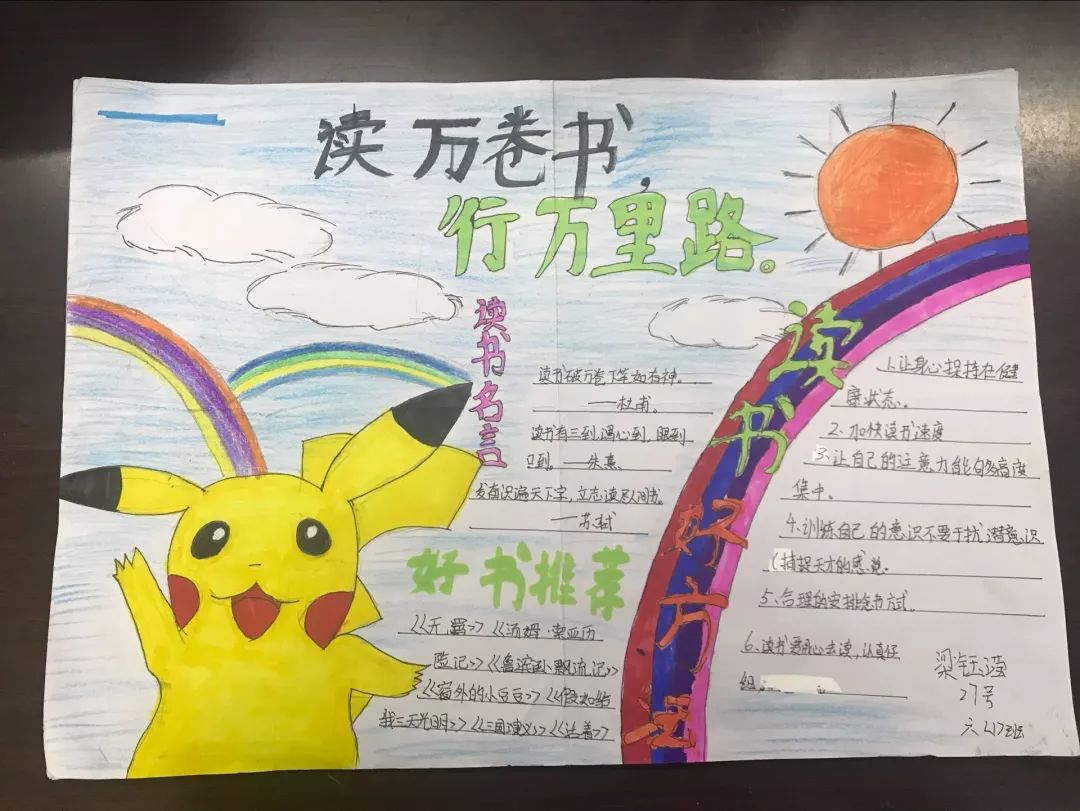 读万卷书，
行万里路。
读书名言
读书破万卷下笔如有神。
——杜甫。
读书有三到，遇心到，眼到
口到。——朱熹
发奋识遍天下字，立志读尽人间书。
——苏轼
好书推荐
《无羁》《汤姆·索亚历
险记》《鲁滨逊飘流记》
《窗外的小豆豆》《假如给
我三天光明》《三国演义》《活着》
读书好方法
1.让身心保持在健
康状态。
2.加快读书速度
3.让自己的注意力能够高度
集中。
4.训练自己的意识不要干扰潜意识
(捕捉天才的感觉.
5、合理的安排读书方式。
6、读书要用心去读，认真仔
细
梁钰滢
27号
六(2)班